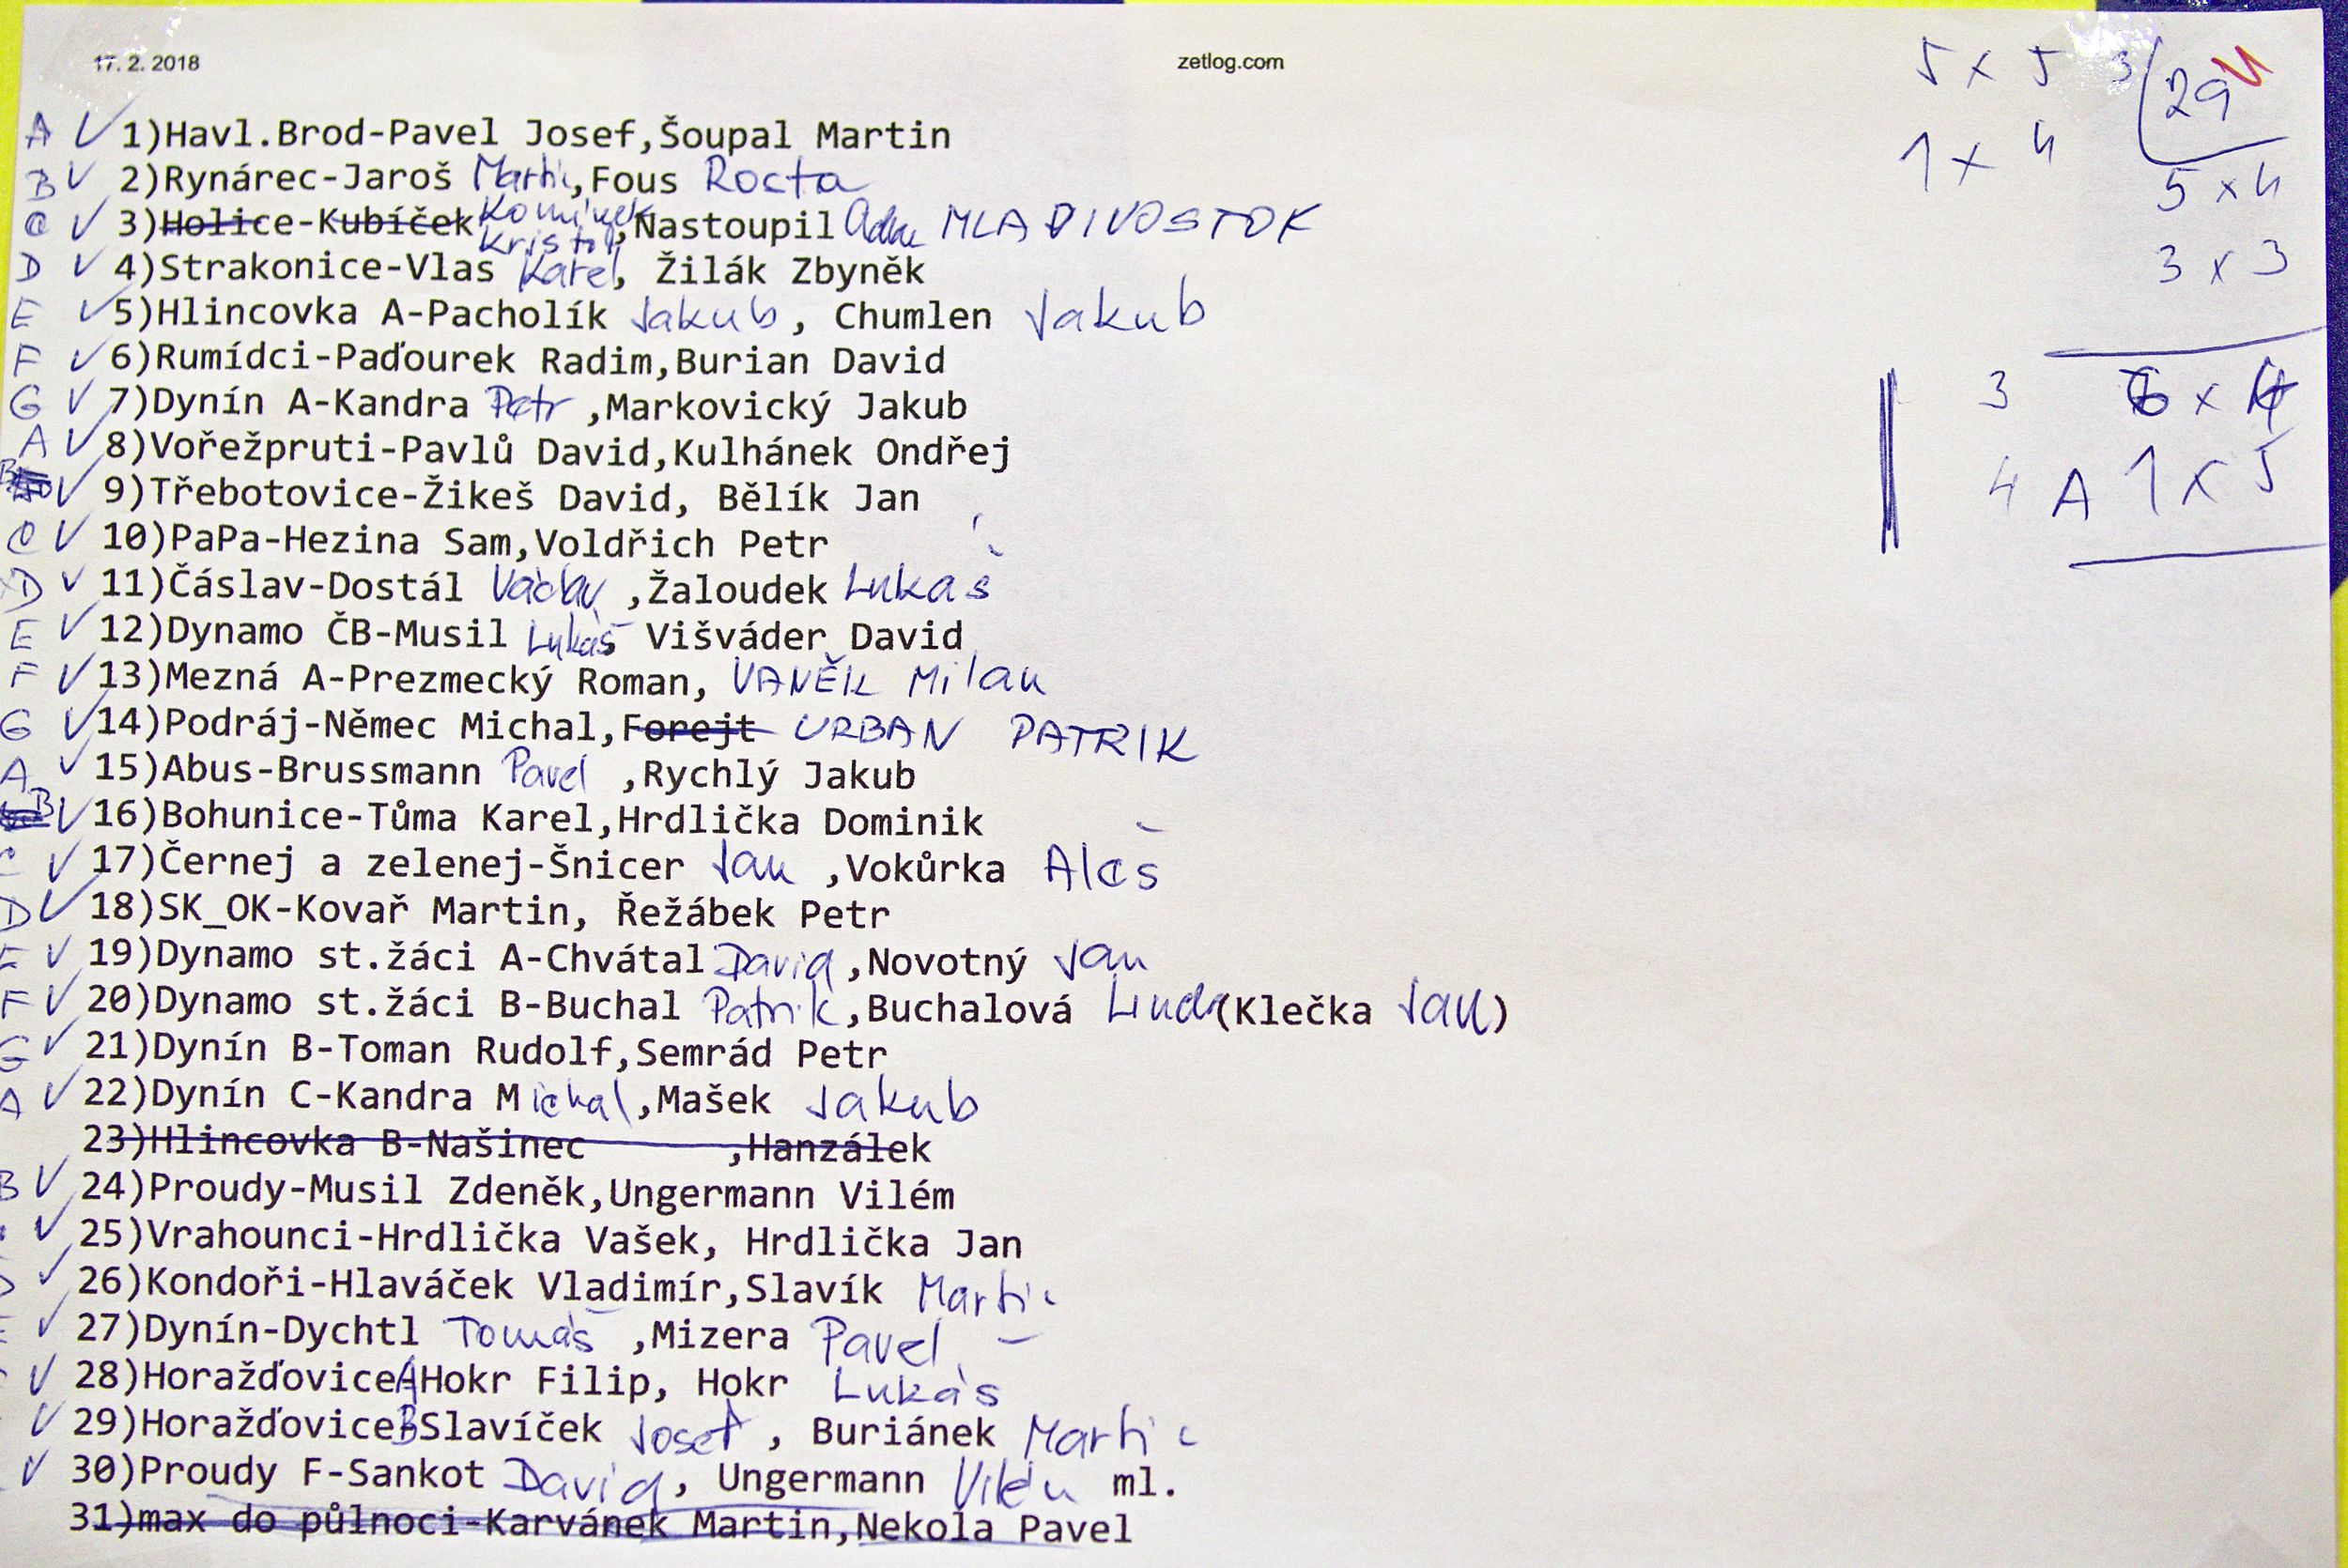 17. 2. 2018 zetlog.com
5 x 5 3 29
1 x 4
5 x 4
3 x 3
3 6 x 4
4 A 1 x 5
A V 1)Havl.Brod-Pavel Josef,Šoupal Martin
B V 2)Rynárec-Jaroš Marti,Fous Rocta
C V 3)Holice-Kubíček Kominek Kristof,Nastoupil Adam MLADIVOSTOK
D V 4)Strakonice-Vlas Karel, Žilák Zbyněk
E V 5)Hlincovka A-Pacholík Jakub, Chumlen Jakub
F V 6)Rumídci-Paďourek Radim,Burian David
G V 7)Dynín A-Kandra Petr ,Markovický Jakub
A V 8)Vořežpruti-Pavlů David,Kulhánek Ondřej
B V 9)Třebotovice-Žikeš David, Bělík Jan
C V 10)PaPa-Hezina Sam,Voldřich Petr
D V 11)Čáslav-Dostál Václav ,Žaloudek Lukáš
E V 12)Dynamo ČB-Musil Lukáš Višváder David
F V 13)Mezná A-Prezmecký Roman, VANĚK Milan
G V 14)Podráj-Němec Michal,Forejt URBAN PATRIK
A V 15)Abus-Brussmann Pavel ,Rychlý Jakub
B V 16)Bohunice-Tůma Karel,Hrdlička Dominik
C V 17)Černej a zelenej-Šnicer Jan ,Vokůrka Aleš
D V 18)SK_OK-Kovař Martin, Řežábek Petr
E V 19)Dynamo st.žáci A-Chvátal David,Novotný Jan
F V 20)Dynamo st.žáci B-Buchal Patrik,Buchalová Linda(Klečka Jan)
G V 21)Dynín B-Toman Rudolf,Semrád Petr
A V 22)Dynín C-Kandra Michal,Mašek Jakub
23)Hlincovka B-Našinec ,Hanzálek
B V 24)Proudy-Musil Zdeněk,Ungermann Vilém
V 25)Vrahounci-Hrdlička Vašek, Hrdlička Jan
V 26)Kondoři-Hlaváček Vladimír,Slavík Martin
V 27)Dynín-Dychtl Tomáš ,Mizera Pavel
V 28)Horažďovice A Hokr Filip, Hokr Lukáš
V 29)Horažďovice B Slavíček Josef , Buriánek Martin
V 30)Proudy F-Sankot David, Ungermann Vilém ml.
31)max do půlnoci-Karvánek Martin,Nekola Pavel